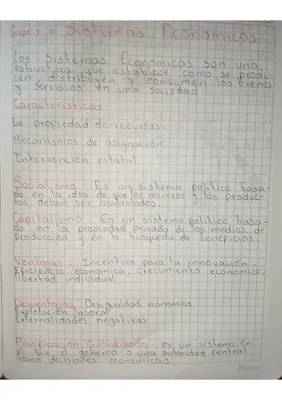 Sistemas Economicos
Los Sistemas Economicos son una
estructura que establece como se produ-
cen distribuyen y consumen los bienes
y servicios en una sociedad
Caracteristicas
La propiedad de recursos
Mecanismos de asignación
Intervención estatal
Socialismo Es un sistema politico basa-
do en la idea de que los recursos y los produc-
tos deben ser controlados.
Capitalismo Es un sistema politico basa-
do en la propiedad privada de los medios de
producción y en la busqueda de beneficios
Ventajas Incentivo para la innovación
Eficiencia economica, crecimiento economico
libertad individual
Desventajas Desigualdad economica
Explotación laboral
Externalidades negativas
Planificación Centralizada es un sistema en
el que el gobierno o una autoridad central
toma decisiones economicas.